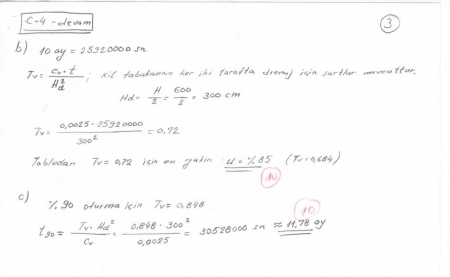 C-4 -devam
3
b) 10 ay = 25920000 sn
Tv = cv·t / Hd² ; Kil tabakanın her iki tarafta drenaj için şartlar mevcuttur.
Hd = H/2 = 600/2 = 300 cm
Tv = 0,0025·25920000 / 300² = 0,72
Tablodan Tv = 0,72 için en yakın U = %85 (Tv = 0,684)
10
c)
%90 oturma için Tv = 0,848
10
t90 = Tv·Hd² / Cv = 0,848·300² / 0,0025 = 30528000 sn ≈ 11,78 ay